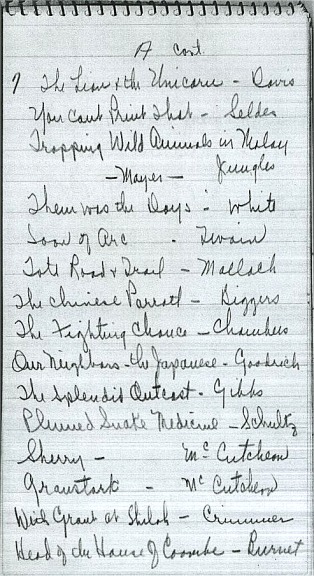 A cont.
? The Lion & the Unicorn - Davis
You Cant Print That - Seldes
Trapping Wild Animals in Malay
Jungles
- Mayer -
Them was the Days - White
Joan of Arc - Twain
Tote Road & Trail - Malloch
The Chinese Parrot - Biggers
The Fighting Chance - Chambers
Our Neighbors - the Japanese - Goodrich
The Splendid Outcast - Gibbs
Plumed Snake Medicine - Schultz
Sherry - McCutcheon
Graustark - McCutcheon
With Grant at Shiloh -
Head of the House of Coombe - Burnet